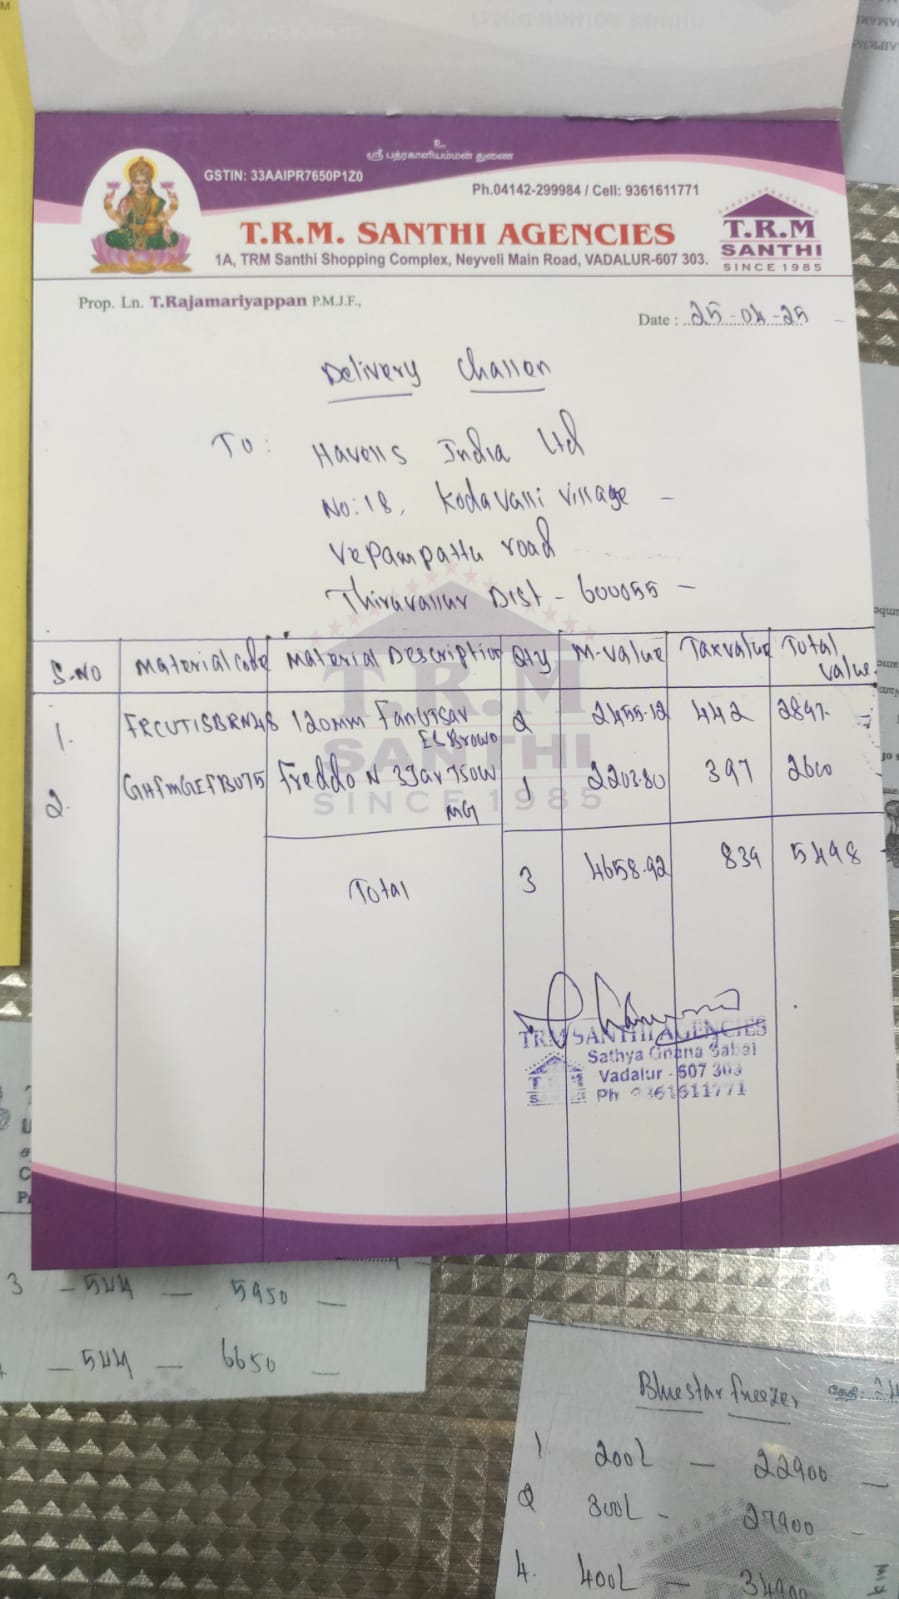 உ
ஸ்ரீ பத்ரகாளியம்மன் துணை
GSTIN: 33AAIPR7650P1Z0
Ph.04142-299984 / Cell: 9361611771
T.R.M. SANTHI AGENCIES
1A, TRM Santhi Shopping Complex, Neyveli Main Road, VADALUR-607 303.
T.R.M
SANTHI
SINCE 1985
Prop. Ln. T.Rajamariyappan P.M.J.F.,
Date : 25-04-25
Delivery Challan
To: Havells India Ltd
No: 18, Kodavalli Village
Vepampattu road
Thiruvallur Dist - 600055
S.NO Material Code Material Description Qty M-Value Taxvalue Total Value
1. FRCUTISBRN48 120MM Fan 2 2455.12 442 2897
EL Brown
2 GHFMGEFB075 Freddo N 3Jar 750W 1 2203.80 397 2600
MG
Total 3 4658.92 839 5498
T.R.M
SANTHI
SINCE 1985
TRM SANTHI AGENCIES
Sathya Gnana Sabai
Vadalur - 607 303
Ph 9361611771
3 - 544 - 5950
- 544 - 6650
Bluestar freezer
தேதி:
1 200L - 22900
2 300L - 27900
4. 400L - 34900